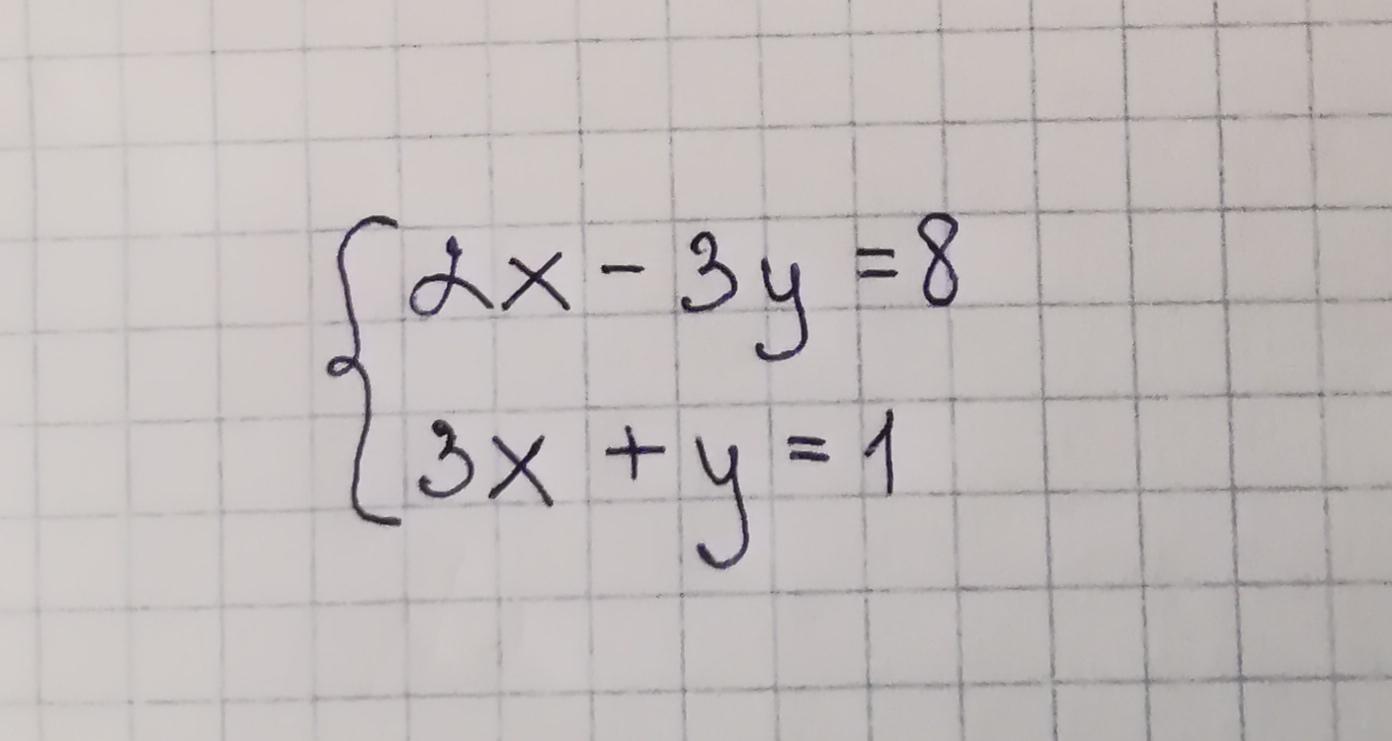 2x - 3y = 8
3x + y = 1